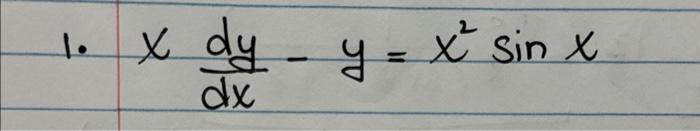 1. x dy/dx - y = x² sin x